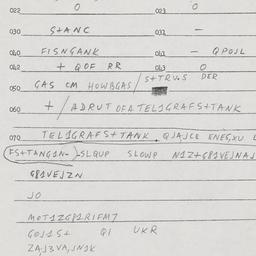 022 0 023 0
030 S+ANC 032 -
040 FISNGANK 041 - QPOJL
042 + QOF RR 043 0
050 GAS CM HOWBGAS/ S+TRUS DER
060 + / ADRUT OFA TEL1GRAFS+TANK
070 TEL1GRAFS+TANK. QJAJCE ENEGXU
FS+TANG1N- SLQUP SLOWP N1Z+G81VEJNAJ
G81VEJZN
JO
MOT1ZG81RIFM7
GOJ1S+ QI UKR
ZAJ3VAJNJK